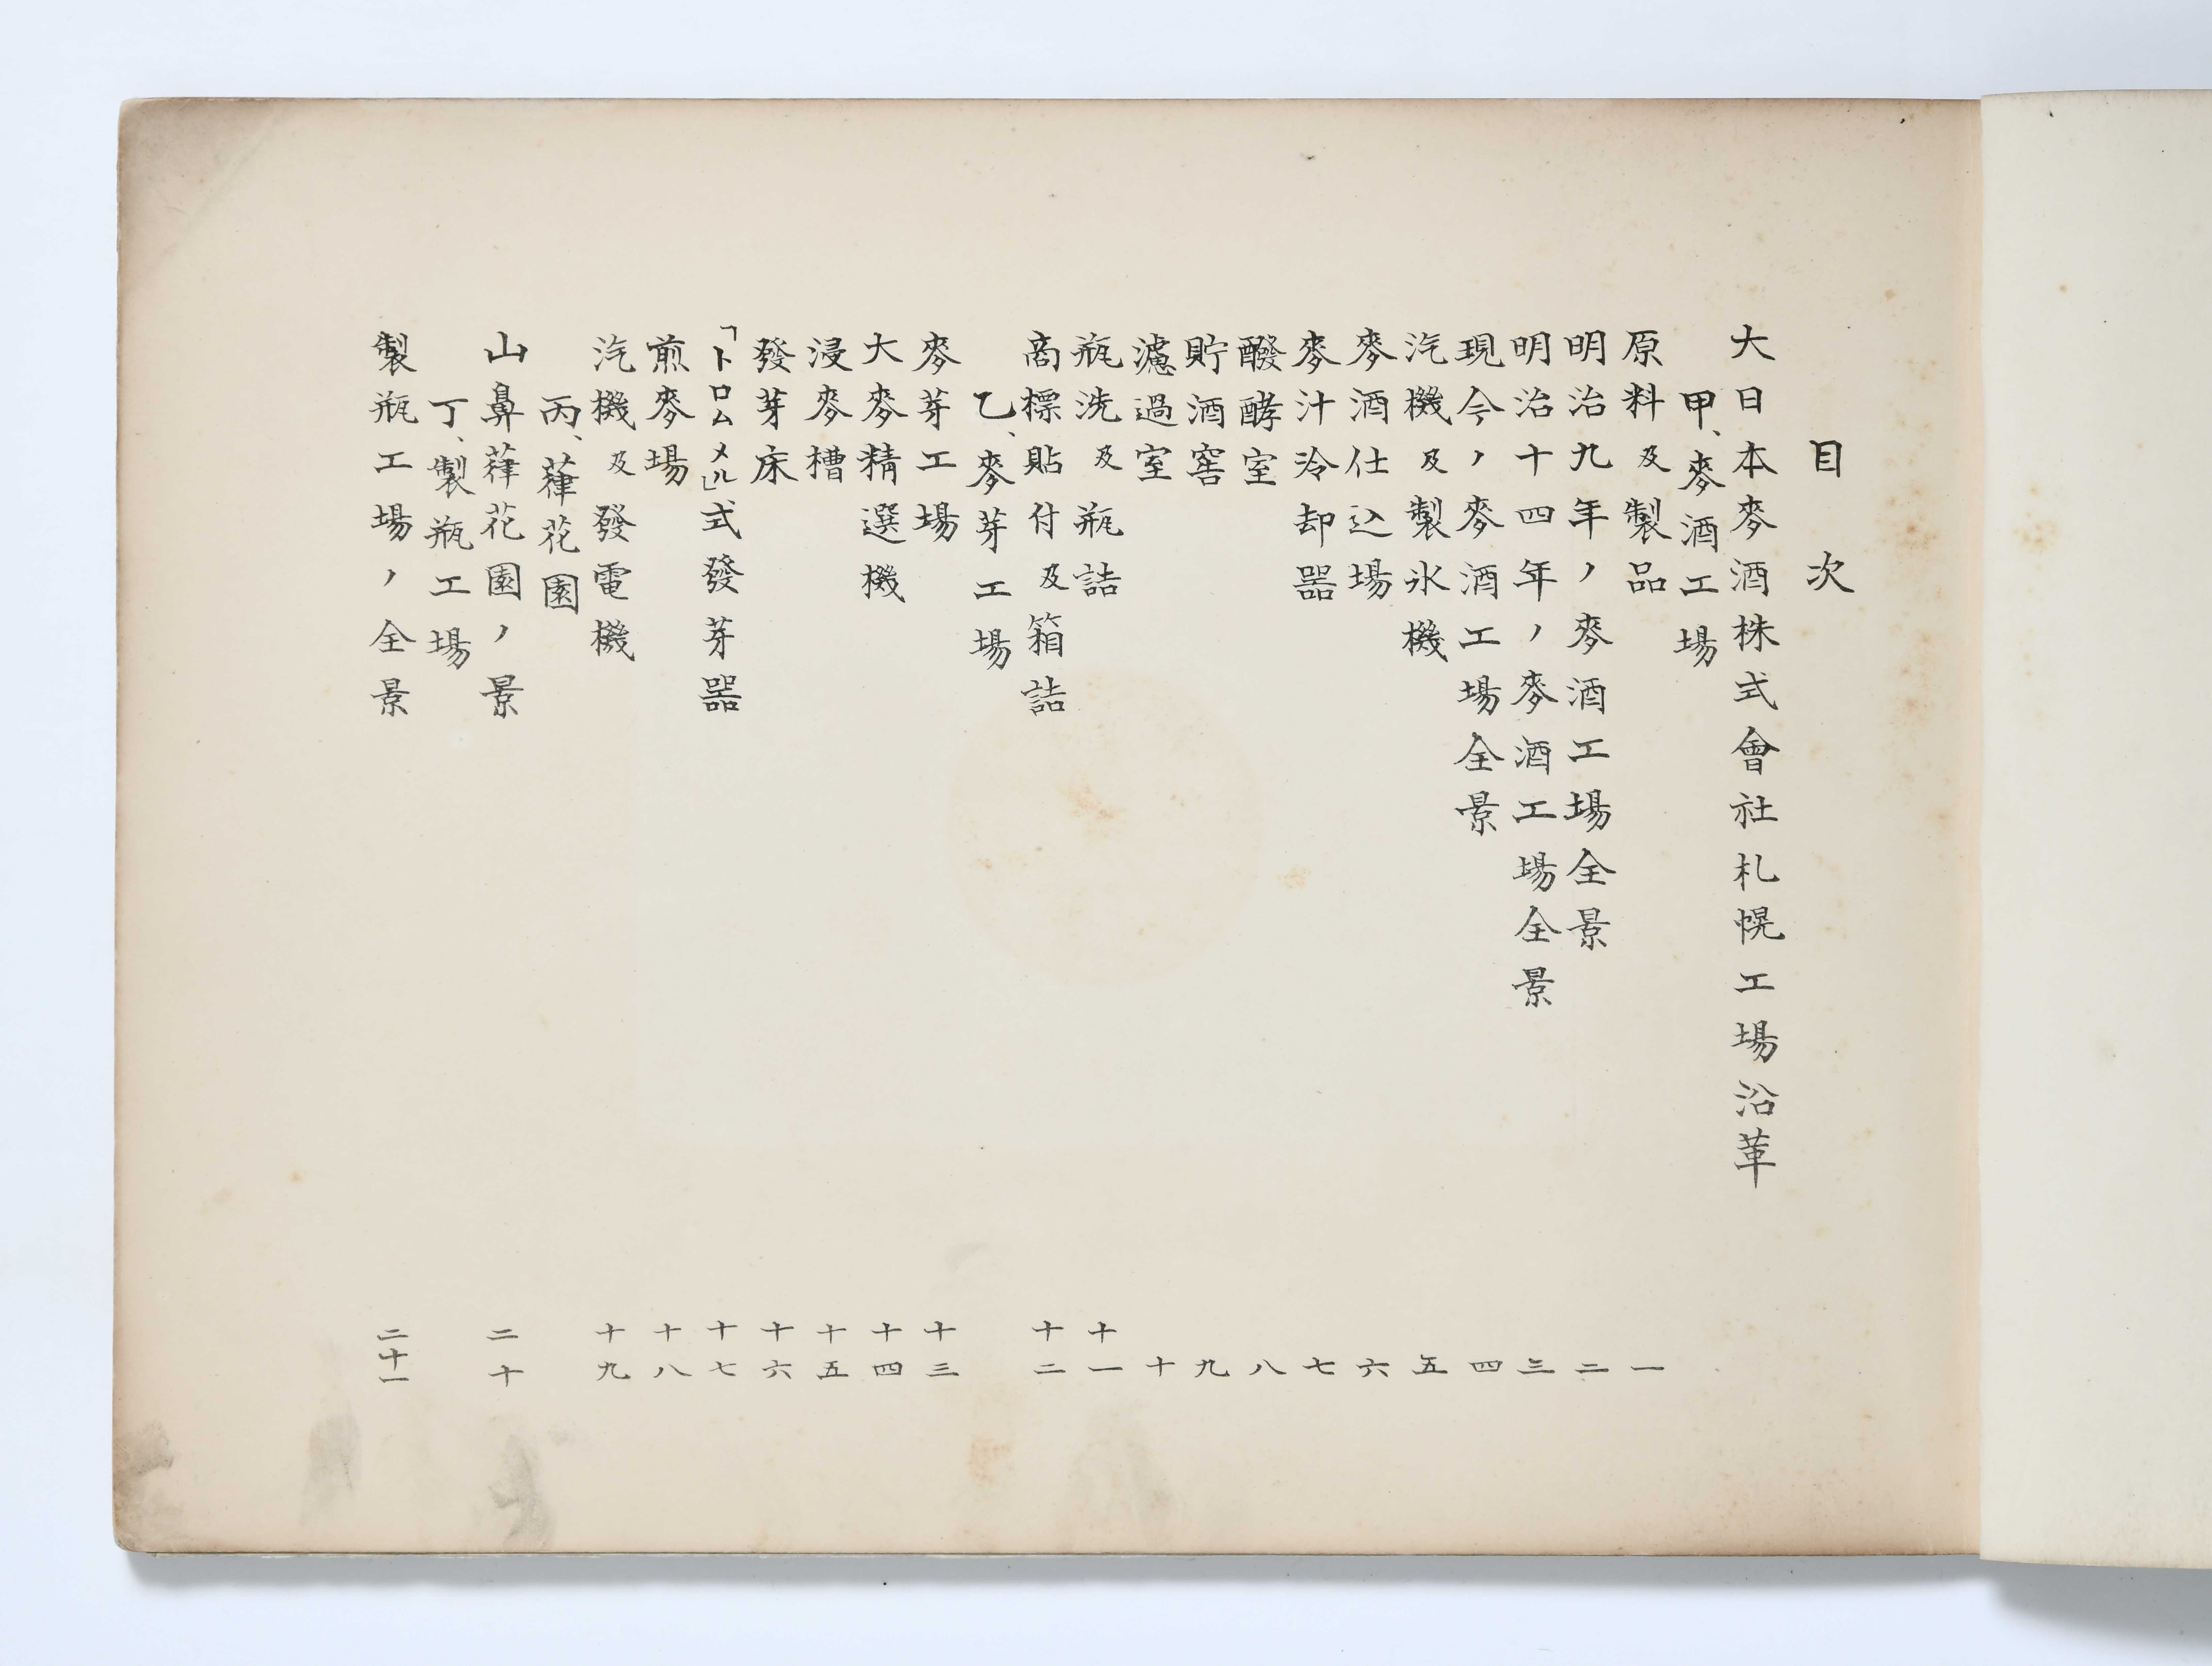 目次
大日本麥酒株式會社札幌工場沿革
甲、麥酒工場
原料及製品 一
明治九年ノ麥酒工場全景 二
明治十四年ノ麥酒工場全景 三
現今ノ麥酒工場全景 四
汽機及製氷機 五
麥酒仕込場 六
麥汁冷却器 七
醱酵室 八
貯酒窖 九
濾過室 十
瓶洗及瓶詰 十一
商標貼付及箱詰 十二
乙、麥芽工場
麥芽工場 十三
大麥精選機 十四
浸麥槽 十五
發芽床 十六
「トロムメル」式發芽器 十七
煎麥場 十八
汽機及發電機 十九
丙、葎花園
山鼻葎花園ノ景 二十
丁、製瓶工場
製瓶工場ノ全景 二十一